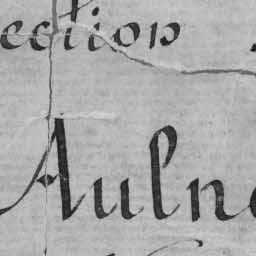 ection
Auln